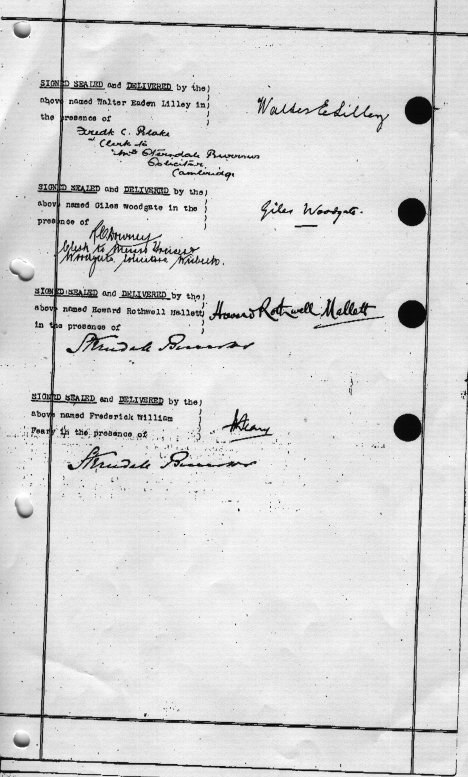 SIGNED SEALED and DELIVERED by the)
above named Walter Eaden Lilley in)
the presence of )
Walter E Lilley
Fredk C. Blake
Clerk to
Solicitor
Cambridge
SIGNED SEALED and DELIVERED by the)
above named Giles Woodgate in the )
presence of )
Giles Woodgate.
Clerk to Messrs
Woodgate, Solicitors Wisbech.
SIGNED SEALED and DELIVERED by the)
above named Howard Rothwell Mallett)
in the presence of )
Howard Rothwell Mallett
SIGNED SEALED and DELIVERED by the)
above named Frederick William )
Feary in the presence of )
Feary